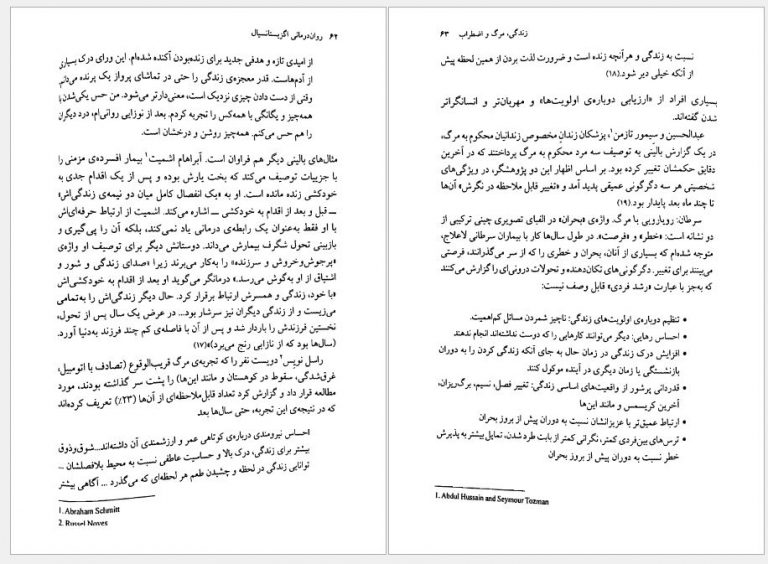 ۶۲ روان‌درمانی اگزیستانسیال
از امیدی تازه و هدفی جدید برای زنده‌بودن آکنده شده‌ام. این ورای درک بسیاری
از آدم‌هاست. قدر معجزه‌ی زندگی را حتی در تماشای پرواز یک پرنده می‌دانم
وقتی از دست دادن چیزی نزدیک است، معنی‌دارتر می‌شود. من حس یکی‌شدن با
همه‌چیز و یگانگی با همه‌کس را تجربه کردم. بعد از نوزایی روانی‌ام، درد دیگران
را هم حس می‌کنم. همه‌چیز روشن و درخشان است.
مثال‌های بالینی دیگر هم فراوان است. آبراهام اشمیت۱ بیمار افسرده‌ی مزمنی را
با جزییات توصیف می‌کند که بخت یارش بوده و پس از یک اقدام جدی به
خودکشی زنده مانده است. او به «یک انفصال کامل میان دو نیمه‌ی زندگی‌اش»
ــ قبل و بعد از اقدام به خودکشی ــ اشاره می‌کند. اشمیت از ارتباط حرفه‌ای‌اش
با او فقط به‌عنوان یک رابطه‌ی درمانی یاد نمی‌کند، بلکه آن را پی‌گیری و
بازبینی تحول شگرف بیمارش می‌داند. دوستانش دیگر برای توصیف او واژه‌ی
«پرجوش‌وخروش و سرزنده» را به‌کار می‌برند زیرا «صدای زندگی و شور و
اشتیاق از او به‌گوش می‌رسد.» درمانگر می‌گوید او بعد از اقدام به خودکشی‌اش
«با خود، زندگی و همسرش ارتباط برقرار کرد. حال دیگر زندگی‌اش را به‌تمامی
می‌زیست و از زندگی دیگران نیز سرشار بود... در عرض یک سال پس از تحول،
نخستین فرزندش را باردار شد و پس از آن با فاصله‌ی کم چند فرزند به‌دنیا آورد.
(سال‌ها بود که از نازایی رنج می‌برد)»(۱۷)
راسل نویس۲ دویست نفر را که تجربه‌ی مرگ قریب‌الوقوع (تصادف با اتومبیل،
غرق‌شدگی، سقوط در کوهستان و مانند این‌ها) را پشت سر گذاشته بودند، مورد
مطالعه قرار داد و گزارش کرد تعداد قابل‌ملاحظه‌ای از آن‌ها (۲۳٪) تعریف کرده‌اند
که در نتیجه‌ی این تجربه، حتی سال‌ها بعد
احساس نیرومندی درباره‌ی کوتاهی عمر و ارزشمندی آن داشته‌اند...شوق‌وذوق
بیشتر برای زندگی، درک بالا و حساسیت عاطفی نسبت به محیط بلافصلشان ...
توانایی زندگی در لحظه و چشیدن طعم هر لحظه‌ای که می‌گذرد ... آگاهی بیشتر
1. Abraham Schmitt
2. Russel Noyes
زندگی، مرگ و اضطراب ۶۳
نسبت به زندگی و هرآنچه زنده است و ضرورت لذت بردن از همین لحظه پیش
از آنکه خیلی دیر شود.(۱۸)
بسیاری افراد از «ارزیابی دوباره‌ی اولویت‌ها» و مهربان‌تر و انسانگراتر
شدن گفته‌اند.
عبدالحسین و سیمور تازمن۱، پزشکان زندان مخصوص زندانیان محکوم به مرگ،
در یک گزارش بالینی به توصیف سه مرد محکوم به مرگ پرداختند که در آخرین
دقایق حکمشان تغییر کرده بود. بر اساس اظهار این دو پژوهشگر، در ویژگی‌های
شخصیتی هر سه دگرگونی عمیقی پدید آمد و «تغییر قابل ملاحظه در نگرش» آن‌ها
تا چند ماه بعد پایدار بود.(۱۹)
سرطان: رویارویی با مرگ. واژه‌ی «بحران» در الفبای تصویری چینی ترکیبی از
دو نشانه است: «خطر» و «فرصت». در طول سال‌ها کار با بیماران سرطانی لاعلاج،
متوجه شده‌ام که بسیاری از آنان، بحران و خطری را که از سر می‌گذرانند، فرصتی
می‌بینند برای تغییر. دگرگونی‌های تکان‌دهنده و تحولات درونی‌ای را گزارش می‌کنند
که به‌جز با عبارت «رشد فردی» قابل وصف نیست:
• تنظیم دوباره‌ی اولویت‌های زندگی: ناچیز شمردن مسائل کم‌اهمیت.
• احساس رهایی: دیگر می‌توانند کارهایی را که دوست نداشته‌اند انجام ندهند
• افزایش درک زندگی در زمان حال به جای آنکه زندگی کردن را به دوران
بازنشستگی یا زمان دیگری در آینده موکول کنند
• قدردانی پرشور از واقعیت‌های اساسی زندگی: تغییر فصل، نسیم، برگ‌ریزان،
آخرین کریسمس و مانند این‌ها
• ارتباط عمیق‌تر با عزیزانشان نسبت به دوران پیش از بروز بحران
• ترس‌های بین‌فردی کمتر، نگرانی کمتر از بابت طرد شدن، تمایل بیشتر به پذیرش
خطر نسبت به دوران پیش از بروز بحران
1. Abdul Hussain and Seymour Tozman